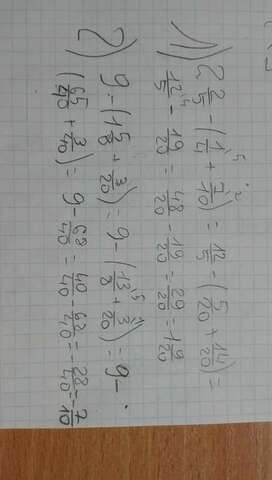 1) 2 2/5 - (1/4^5 + 7/10^2) = 12/5 - (5/20 + 14/20) =
12/5^4 - 19/20 = 48/20 - 19/20 = 29/20 = 1 9/20
2) 9 - (1 5/8 + 3/20) = 9 - (13/8^5 + 3/20) = 9 -
(65/40 + 3/40) = 9 - 68/40 = 40/40 - 68/40 = - 28/40 = - 7/10